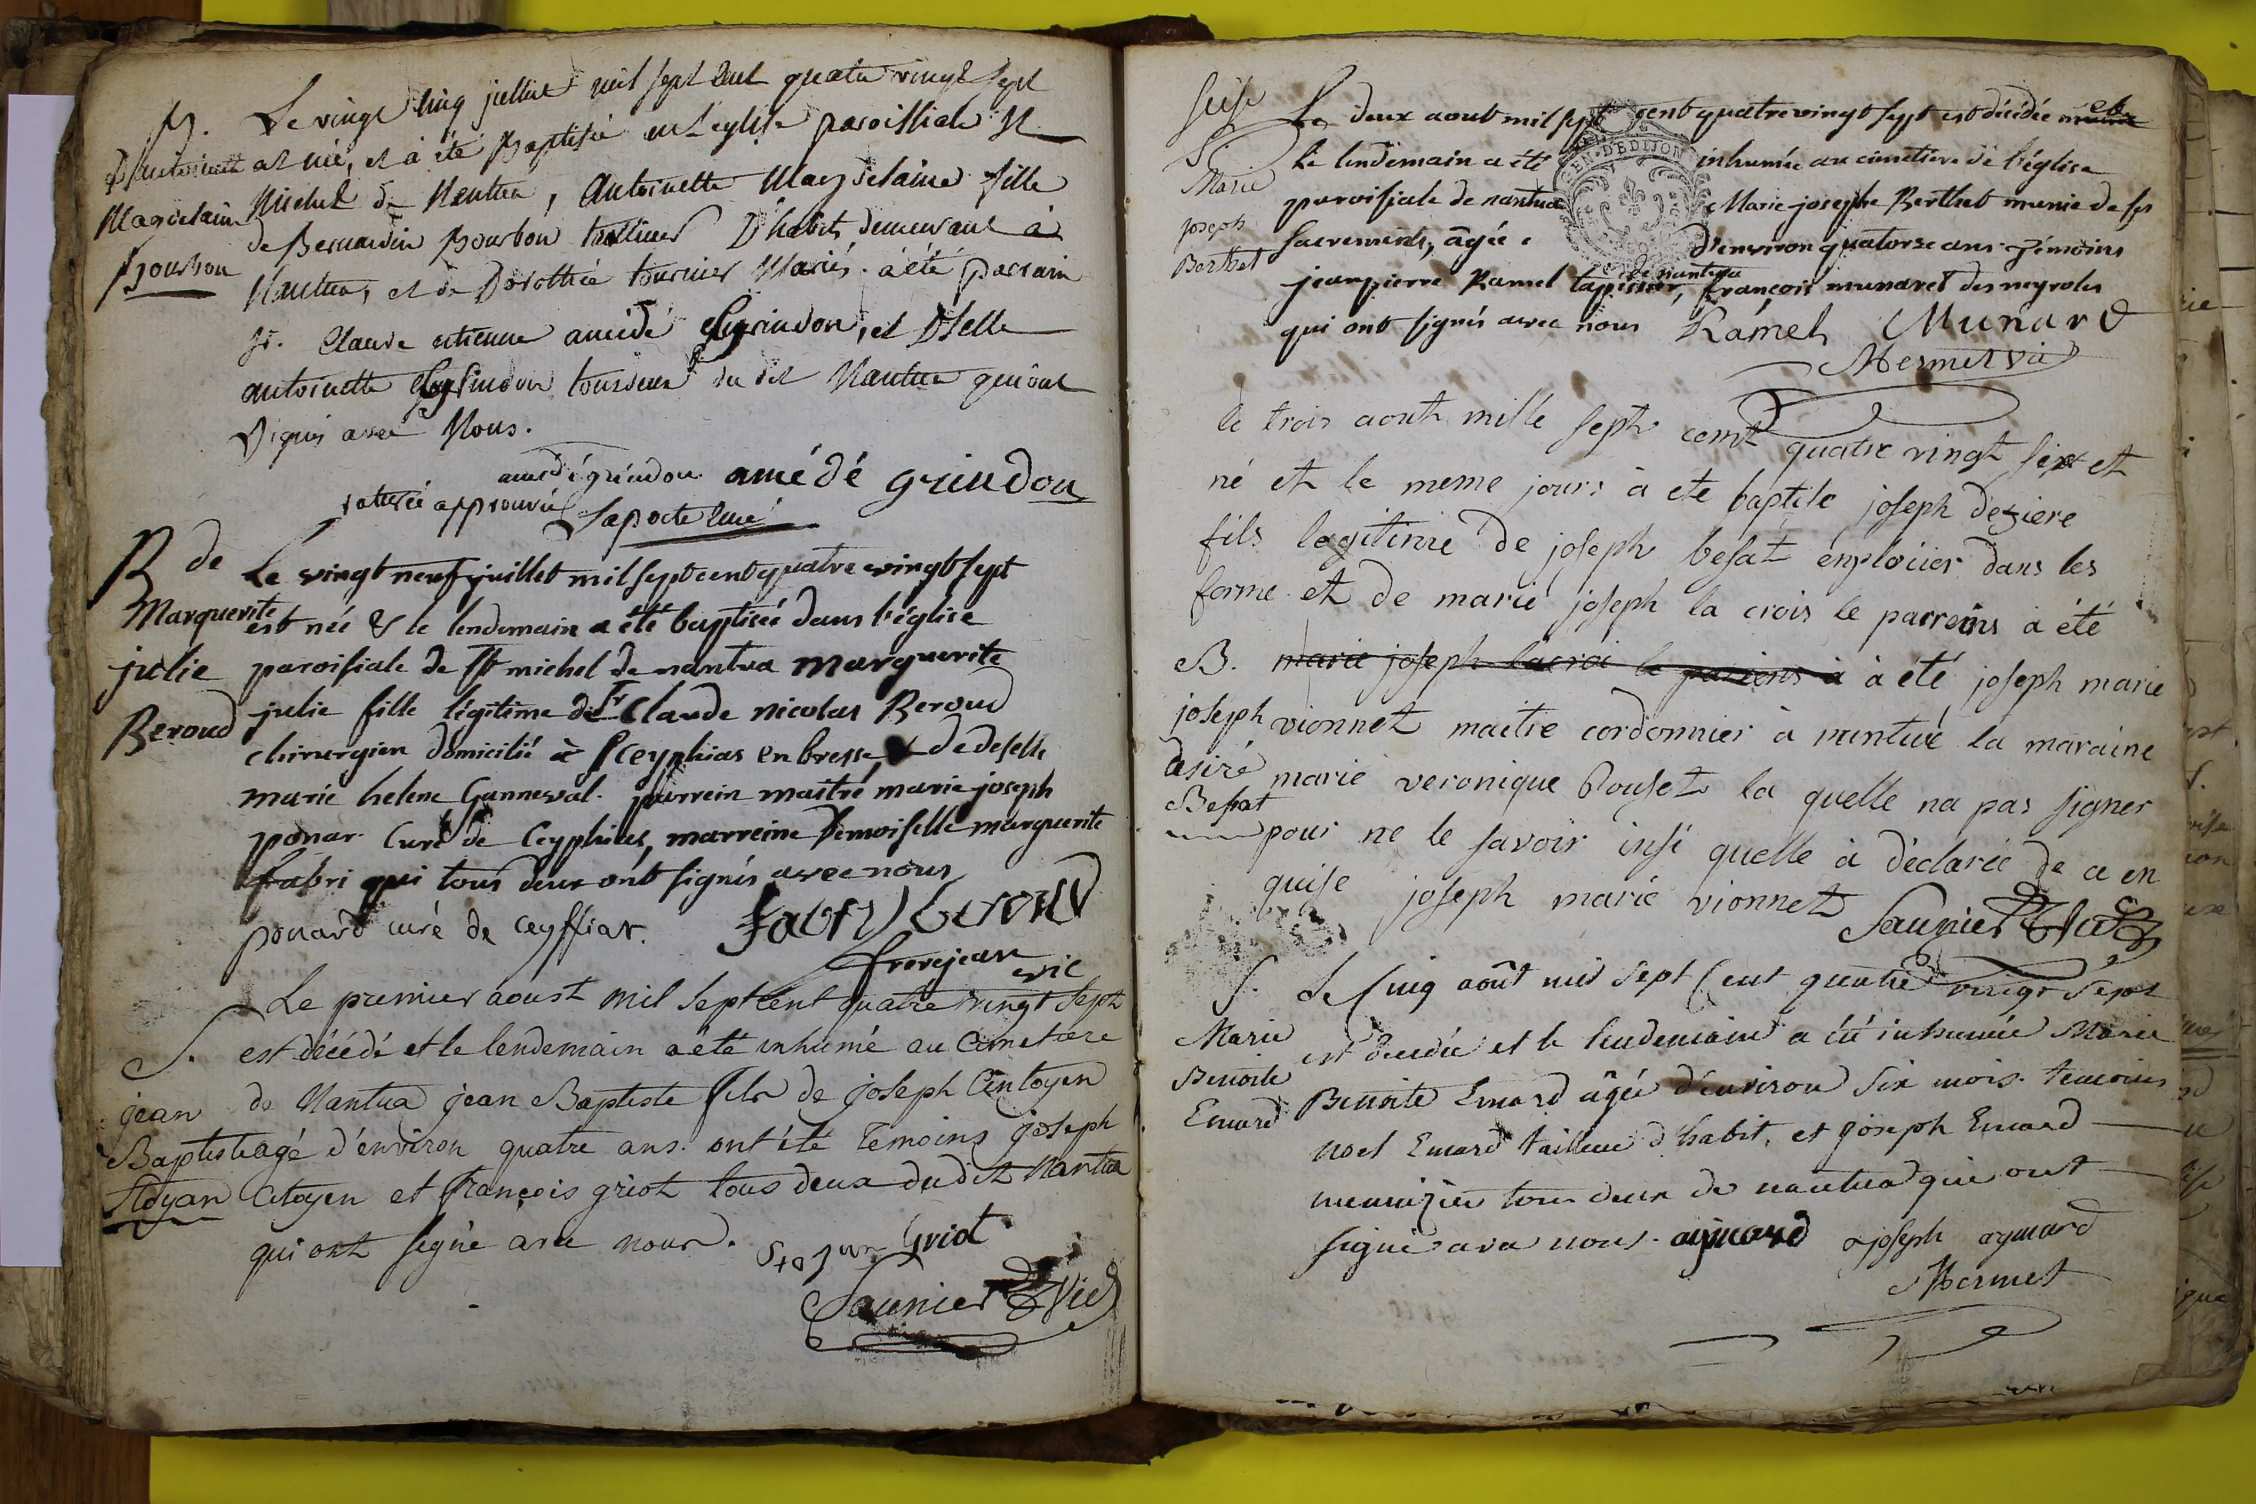 B.
D'antoinette
Magdelaine
Bourbon
Le vingt cinq juillet mil sept cent quatre vingt sept
est née, et à été Baptisée en L'eglise paroissiale St
Michel de Nantua, Antoinette Magdelaine fille
de Bernardin Bourbon tailleur D'habits demeurant à
Nantua, et de Dorothée tournier Mariés. a été parrain
Sr. Claude etienne amédé Grindon, et Dselle
antoinette Grindon du dit Nantua qui ont
Signés avec Nous.
amedé grindon amédé grindon
raturée approuvée
B de
Marguerite
julie
Beroud
Le vingt neuf juillet mil sept cent quatre vingt sept
est née & le lendemain a été baptisée dans l'église
paroisiale de St michel de nantua marguerite
julie fille légitime de Sr Claude nicolas Beroud
chirurgien domicilié à Ceyphias en bresse & de deselle
marie helene Ganneval. parrein maitre marie joseph
ponar. Curé de Ceyphias, marreine Demoiselle marguerite
fabri qui tous deux ont signés avec nous
ponard curé de Ceyffiar. fabry beroud
frerejean vic
S.
jean
Baptiste
Stoyan
Le premier aoust mil sept cent quatre vingt sept
est décédé et le lendemain a été inhumé au Cimetiere
de Nantua jean Baptiste fils de joseph Centoyen
agé d'environ quatre ans. ont été temoins joseph
Citoyen et françois griot tous deux dudit Nantua
qui ont signé avec nous.
Griot
Saunier Vic
seise
S.
Marie
joseph
Berthet
Le deux aout mil sept cent quatre vingt sept est décédée et
le lendemain a été inhumée au cimetiere de l'église
paroisiale de nantua Marie josephe Berthet munie de ses
sacrements, âgée d'environ quatorze ans. témoins
de nantua
jean pierre Ramel tapissier, françois munaret des neyroles
qui ont signés avec nous Ramel Munard
Mermet vic
GEN. DE DIJON
B.
joseph
desiré
Besat
le trois aout mille sept cent quatre vingt sept et
né et le meme jours à ete baptise joseph deziere
fils legitime de joseph besat enploiier dans les
ferme et de marie joseph la crois le parreins à été
marie joseph lacroi le pariens à à été joseph marie
vionnet maitre cordonnier à nantue la maraine
marie veronique Rouset la quelle na pas signer
pour ne le savoir insi quelle à déclarée de ce en
quise joseph marie vionnet
Saunier Vic
S.
Marie
Benoite
Emard
Le Cinq août mil sept Cent quatre vingt sept
est decedée et le lendemain a été inhumée Marie
Benoite Emard âgée d'environ six mois. temoins
Noel Emard tailleur d'habit, et joseph Emard
menuizier tous deux de nantua qui ont
signé avec nous. aymard joseph aymard
Mermet